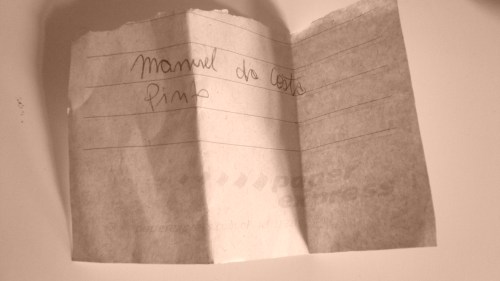 Manuel da Costa
Pinto
paper
express